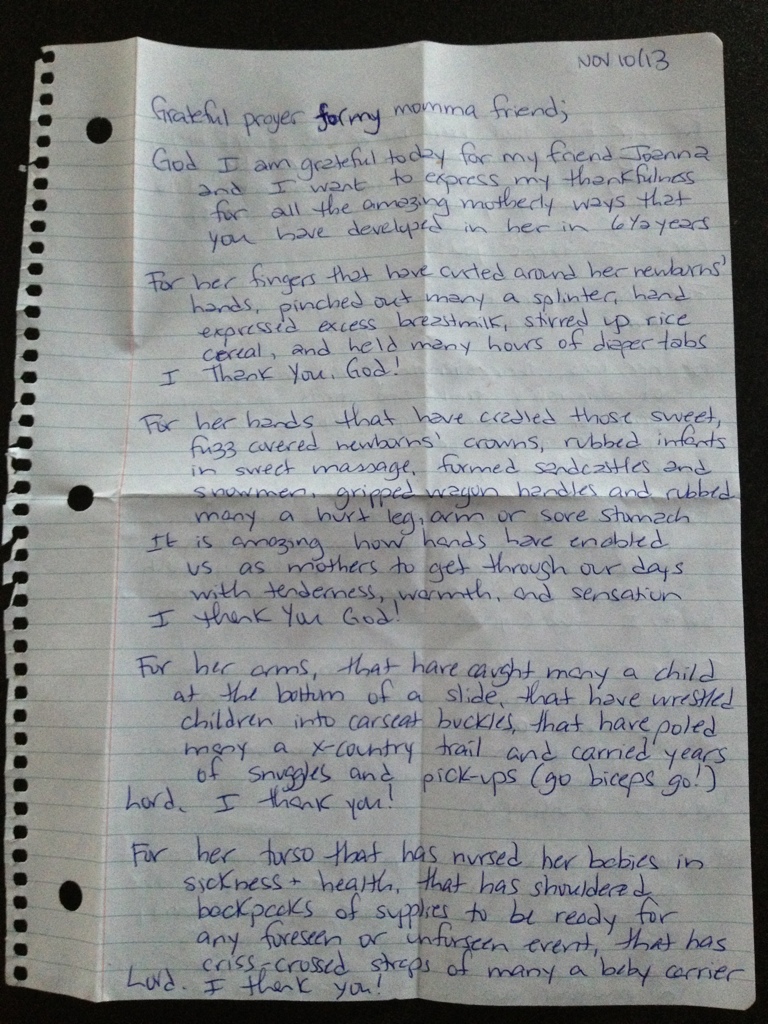 NOV 10/13
Grateful prayer for my momma friend;
God I am grateful today for my friend Joanna
and I want to express my thankfulness
for all the amazing motherly ways that
you have developed in her in 6 1/2 years
For her fingers that have curled around her newborns'
hands, pinched out many a splinter, hand
expressed excess breastmilk, stirred up rice
cereal, and held many hours of diaper tabs
I Thank You, God!
For her hands that have cradled those sweet,
fuzz covered newborns' crowns, rubbed infants
in sweet massage, formed sandcastles and
snowmen, gripped wagon handles and rubbed
many a hurt leg, arm or sore stomach
It is amazing how hands have enabled
us as mothers to get through our days
with tenderness, warmth, and sensation
I thank You God!
For her arms, that have caught many a child
at the bottom of a slide, that have wrestled
children into carseat buckles, that have poled
many a x-country trail and carried years
of snuggles and pick-ups (go biceps go!)
Lord, I thank you!
For her torso that has nursed her babies in
sickness + health, that has shouldered
backpacks of supplies to be ready for
any foreseen or unforseen event, that has
criss-crossed straps of many a baby carrier
Lord, I thank you!